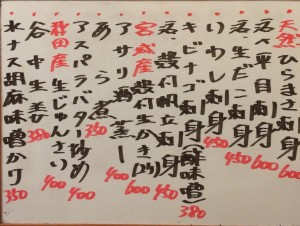 天然ひらまさ刺身 600
天然平目刺身 600
天然生だこ刺身 450
いわし刺身 450
キビナゴ刺身(酢味噌) 380
天然殻付帆立刺身 450
宮城産殻付生かき(2ヶ) 600
アサリ酒蒸し
あら煮 350
アスパラバター炒め 400
秋田産生じゅんさい 400
谷中生姜 380
水ナス胡麻味噌かけ 350